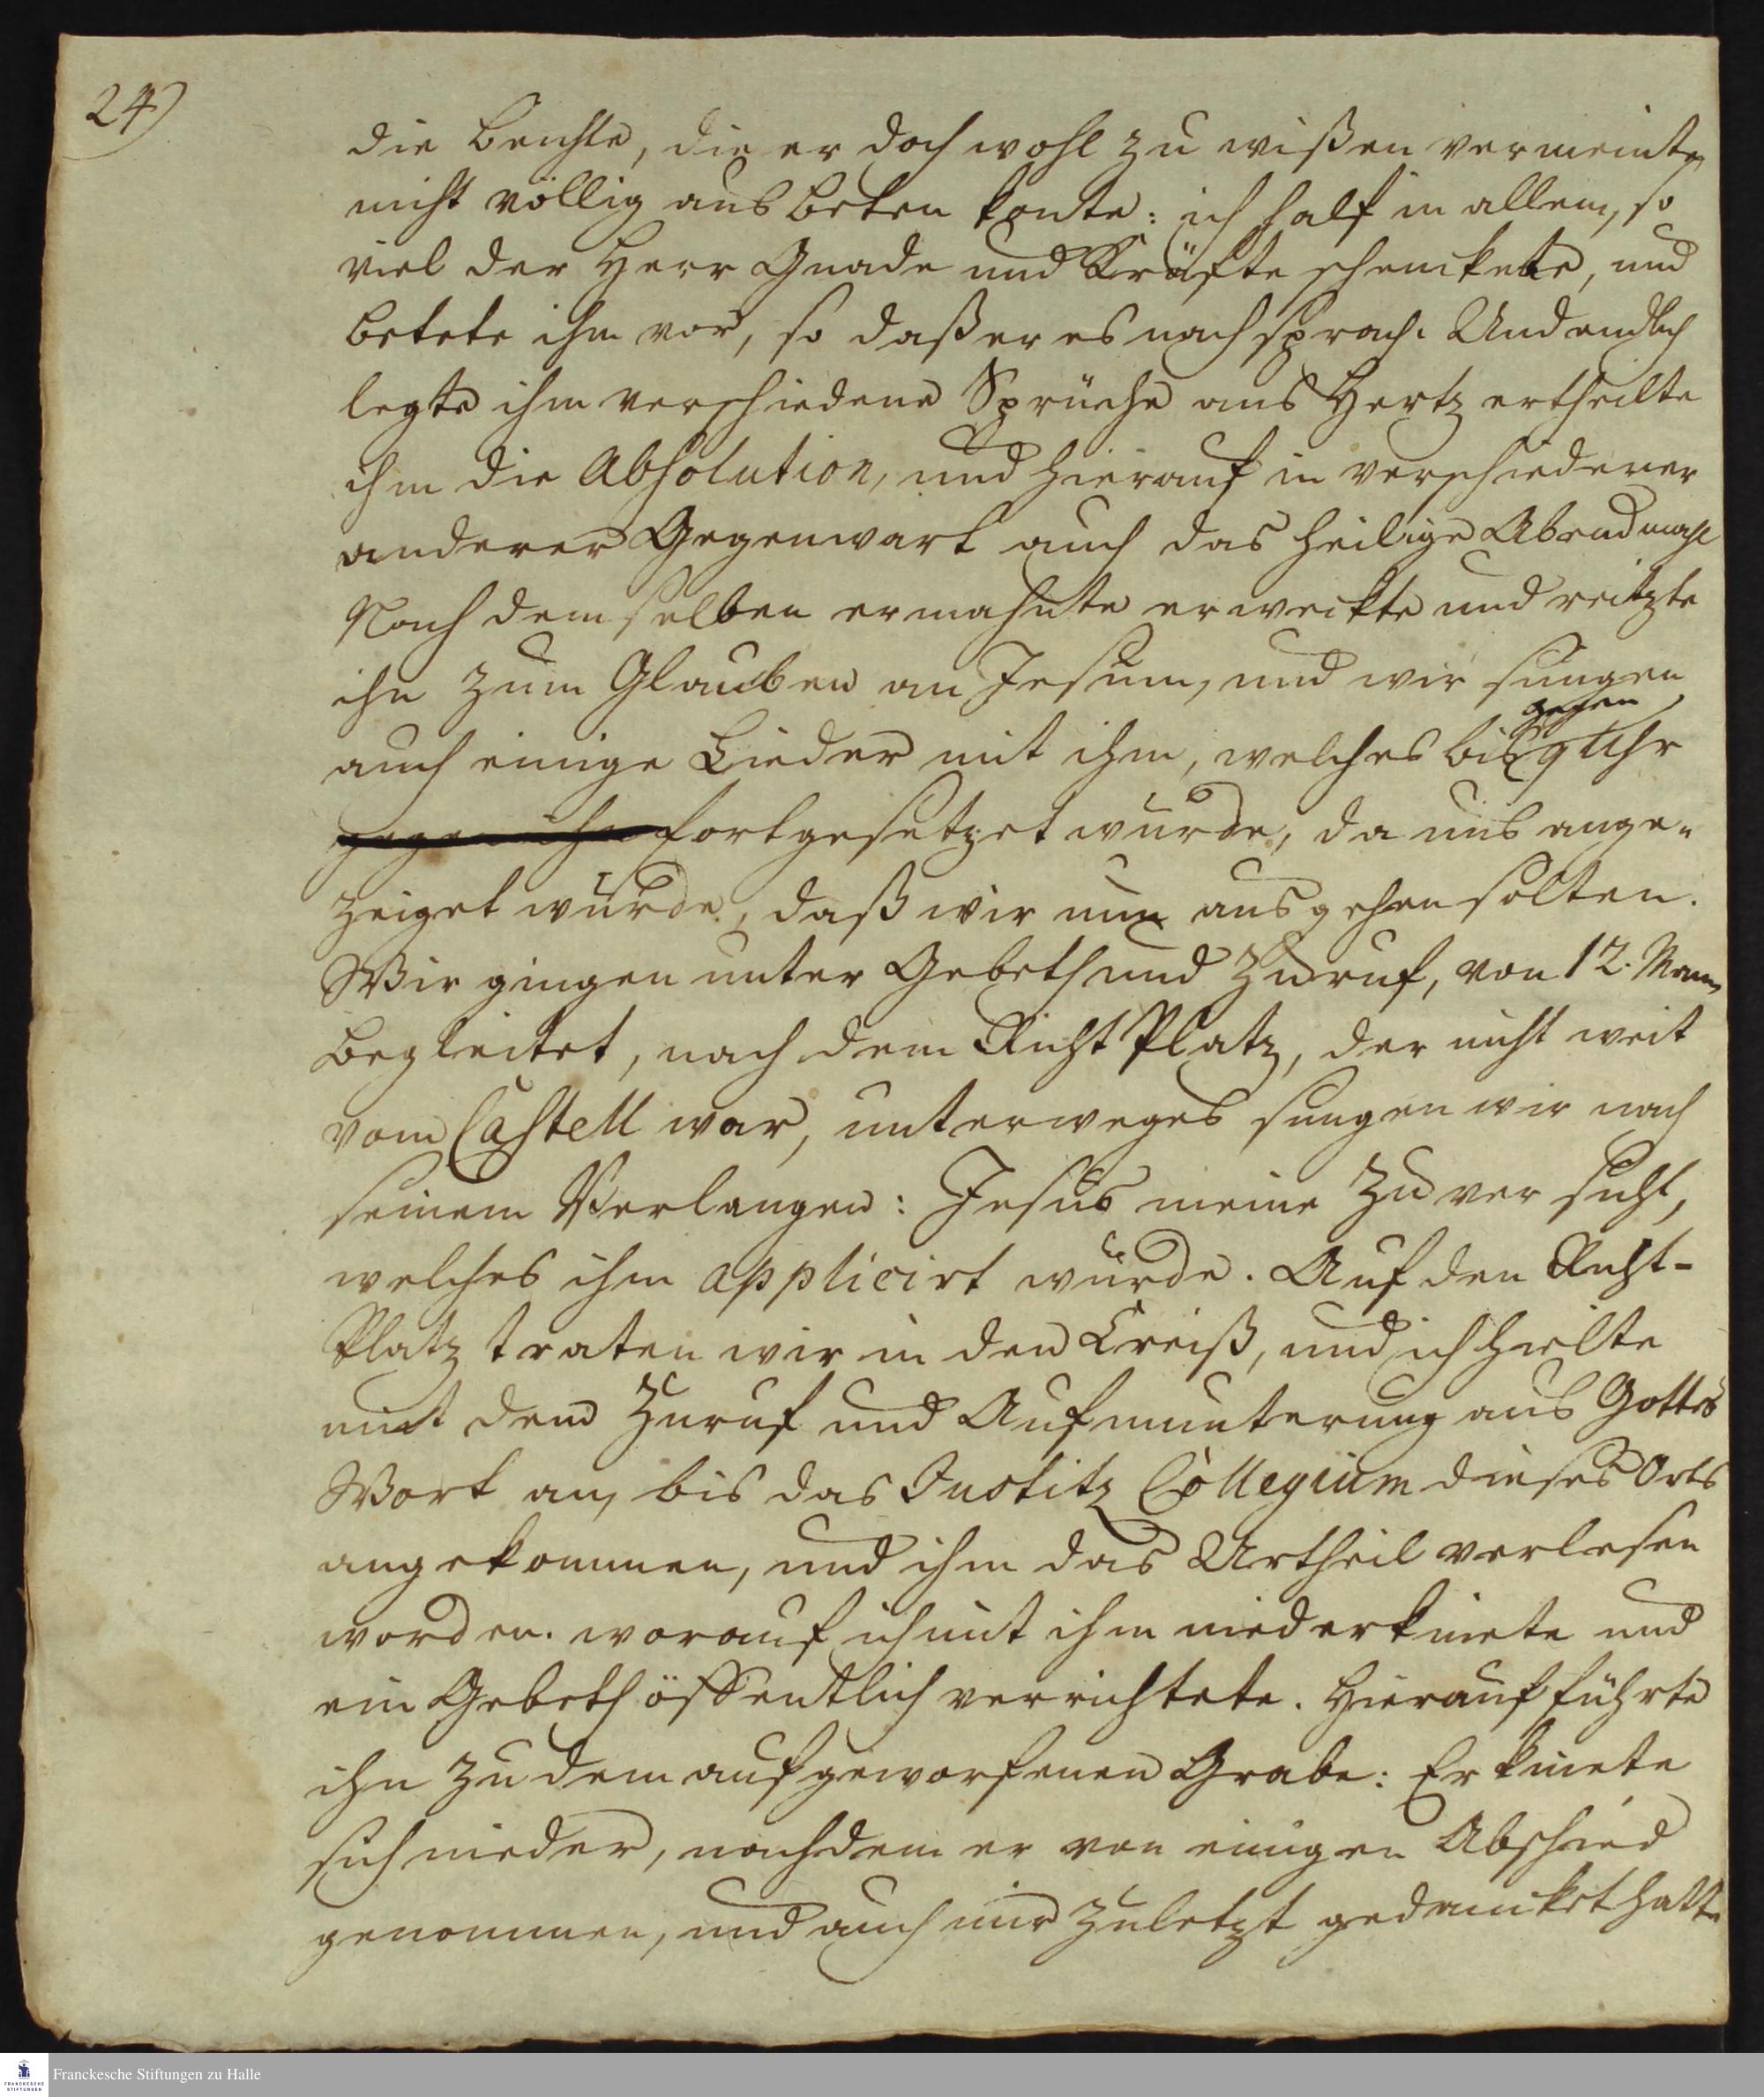 24)
die Beichte, die er doch wohl zu wißen vermeinte
nicht völlig aus beten konte: ich half in allem, so
viel der Herr Gnade und Kräfte schenckete, und
betete ihm vor, so daß er es nach sprach. Und endlich
legte ihm verschiedene Sprüche ans Hertz ertheilte
ihm die Absolution, und hierauf in verschiedener
anderer Gegenwart auch das heilige Abendmahl
Nach demselben ermahnte erweckte und reitzte
ihn zum Glauben an Jesum, und wir sungen
gegen
auch einige Lieder mit ihm, welches bis 9 Uhr
fortgesetzet wurde, da uns ange-
zeiget wurde, daß wir nun ausgehen solten.
Wir gingen unter Gebeth und Zuruf, von 12. Mann
begleitet, nach dem Richt Platz, der nicht weit
vom Castell war, unterweges sungen wir nach
seinem Verlangen: Jesus meine Zuversicht,
welches ihm applicirt wurde. Auf den Richt-
Platz traten wir in den Creiß, und ich hielte
mit dem Zuruf und Aufmunterung aus Gottes
Wort an, bis das Justitz Collegium dieses Orts
angekommen, und ihm das Urtheil verlesen
worden. worauf ich mit ihm niederkniete und
ein Gebeth öffentlich verrichtete. Hierauf führte
ihn zu dem aufgeworfenen Grabe: Er kniete
sich nieder, nachdem er von einigen Abschied
genommen, und auch mir zuletzt gedancket hatte
Franckesche Stiftungen zu Halle
FRANCKESCHE
STIFTUNGEN